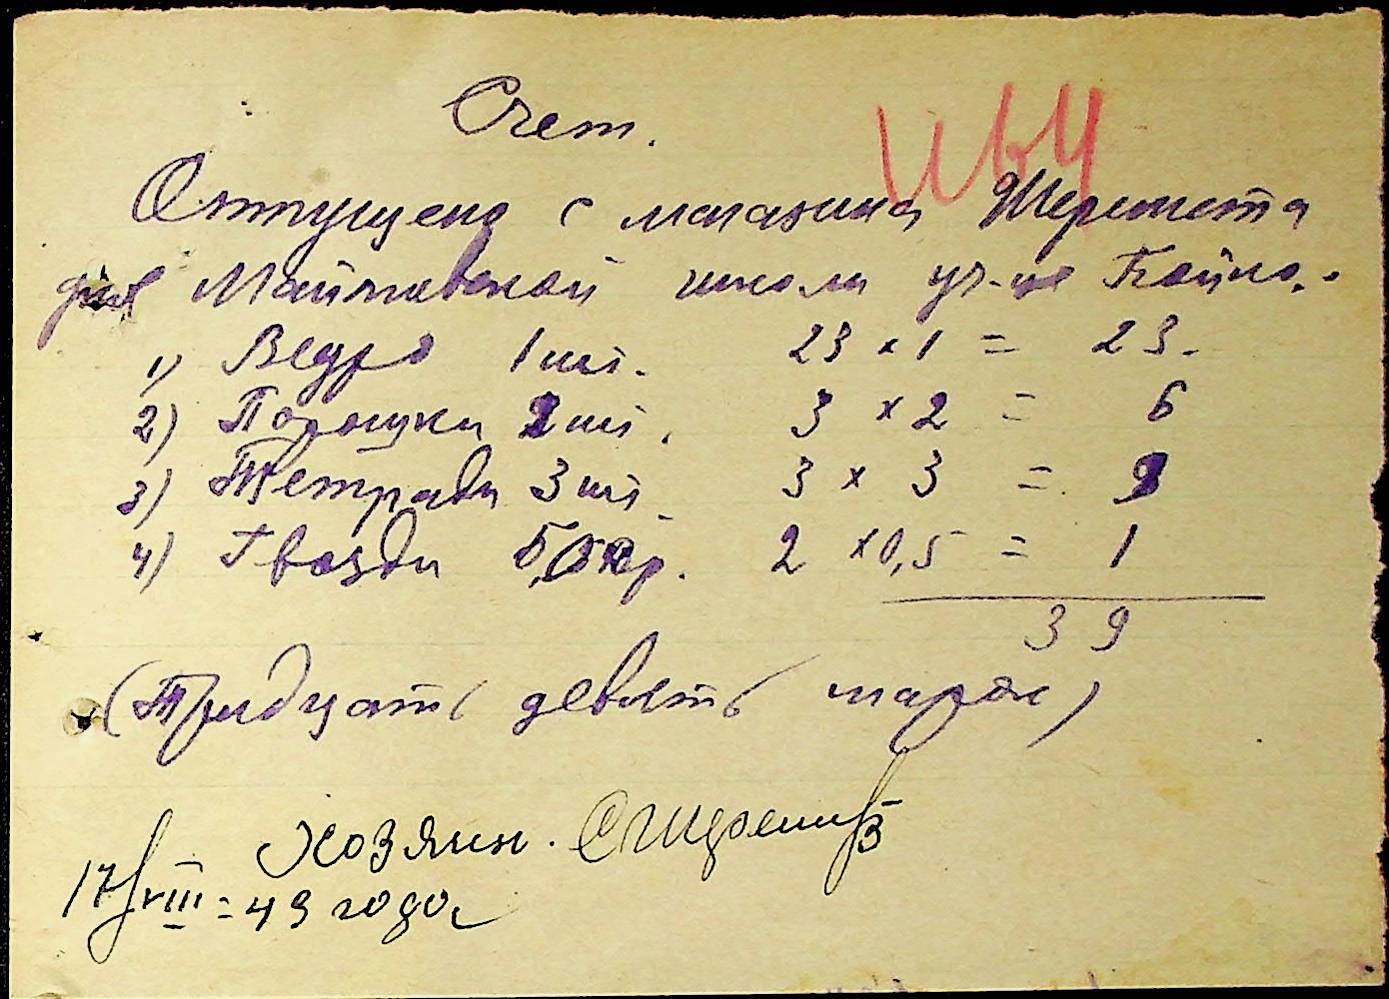 Счет.
№ 4
Отпущено с магазина Шеремета
для Майковской школи уч-це Бойко.
1) Ведро 1 шт. 23 × 1 = 23.
2) Порошки 2 шт. 3 × 2 = 6
3) Тетради 3 шт. 3 × 3 = 9
4) Гвозди 5,0 кр. 2 × 0,5 = 1
39
(Тридцать девять марок)
Хозяин.
17/VIII = 43 года